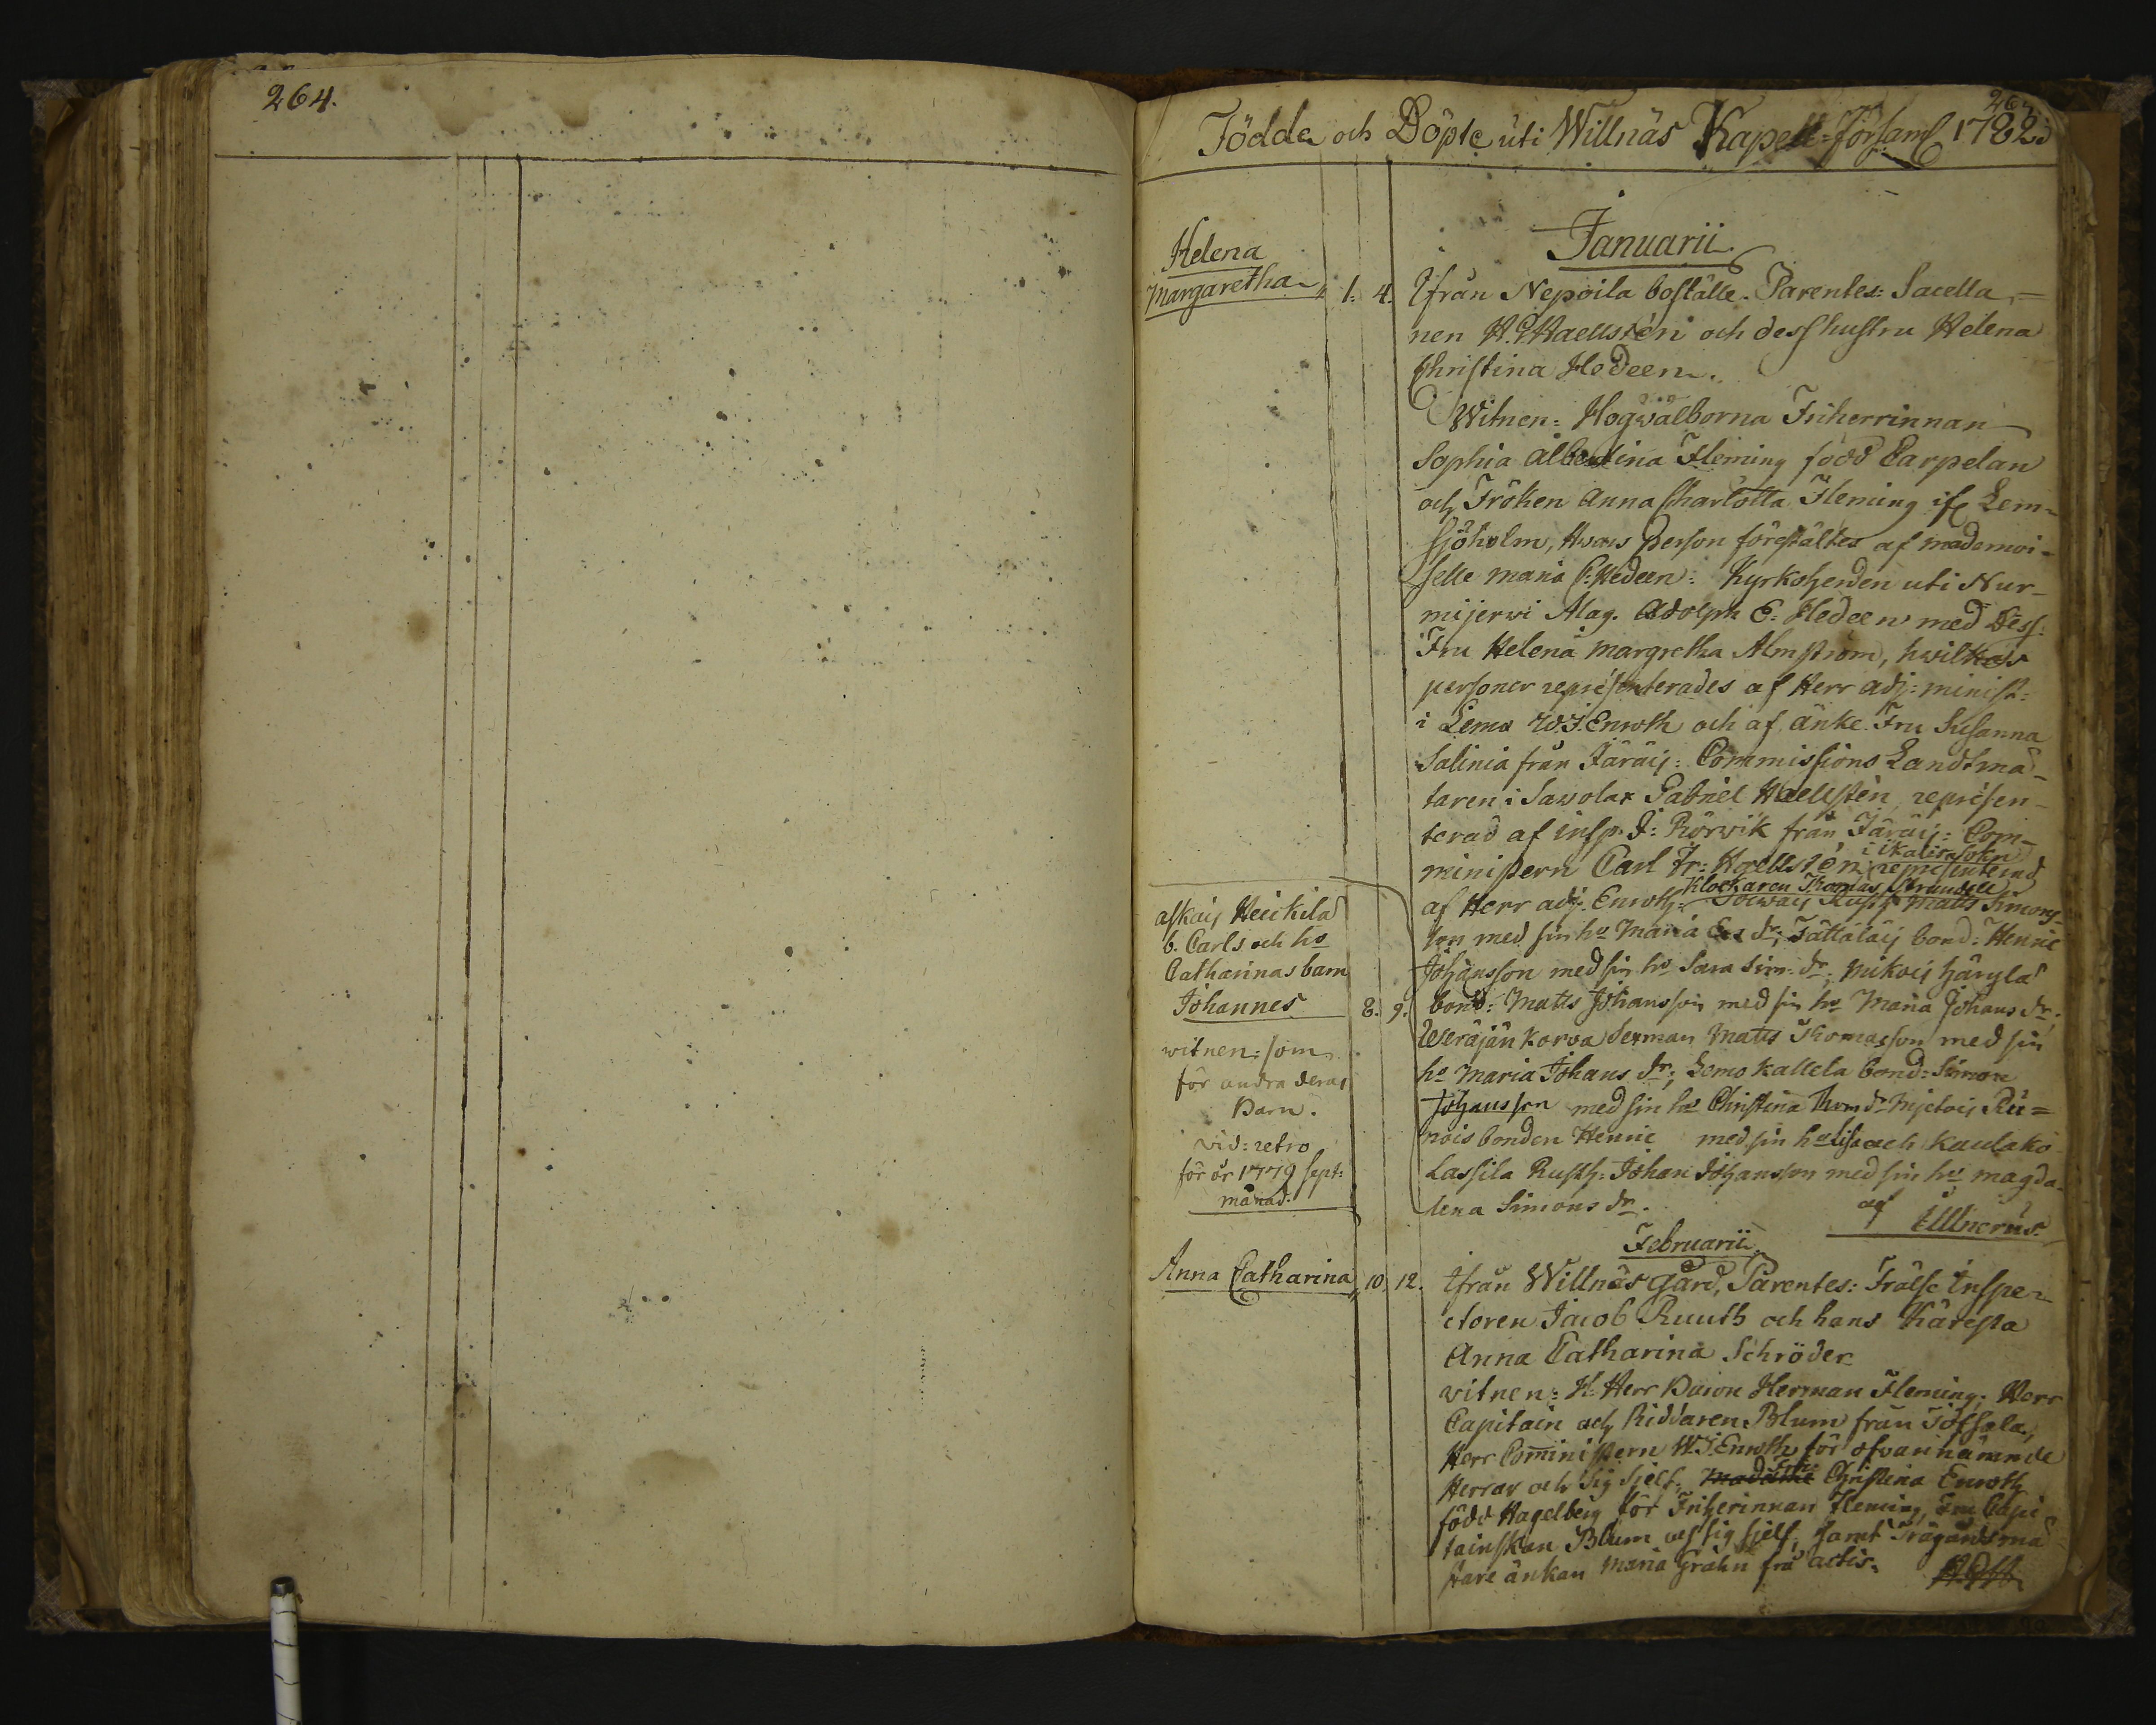 264.
Födde och Döpte uti Willnäs Kapell-Församl 1782
Januarii
Helena
Margaretha 1. 4. Ifrån Nepoila boställe. Parentes: Sacella-
nen H. Haellstén och dess hustru Helena
Christina Hedeen.
Witnen: Högwälborna Friherrinnan
Sophia Albertina Fleming född Carpelan
och Fröken Anna Charlotta Fleming if Lem-
sjöholm, hvars person föreställtes af mademoi-
selle Maria C: Hedeen: Kyrkoherden uti Nur-
mijerwi Mag. Adolph E. Hedeen med Dess:
Fru Helena Margretha Almström, hwilkas
personer representerades af Herr Adj: minist:
i Lemo W.J. Enroth och af änke Fru Susanna
Salinia från Järäis: Commissions Landtmä-
taren i Sawolax Gabriel Haellstén, represen-
terad af insp. J: Rörwik från Järäis: Com-
ministern Carl Fr: Haellstén i Ikalis sokn representerad
af Herr adj. Enroth: Klockaren Thomas Strandell Rusth: Matts Simons-
son med sin ho Maria dr; Tättäläis bond: Henric
Johansson med sin ho Sara Sim: dr; Nikois Häyylä
bond: Matts Johansson med sin ho Maria Johans dr.
Weräjänkorva Sexman Matts Thomasson med sin
ho Maria Johans dr; Lemo Kallela bond: Simon
Johansson med sin ho Christina Thom dr Mjetois Rü=
nois bonden Henric med sin ho Lisa och Kaulako
Lassila Rusth: Johan Johansson med sin ho Magda-
lena Simons dr.
af Ullnerus
askais Heickilä
b. Carls och ho
Catharinas barn
Johannes 8. 9.
witnen: som
för andra deras
Barn.
vid: retro
för år 1779 Sept:
månad.
Februarii
Anna Catharina 10. 12. Ifrån Willnäs gård, Parentes: Frälse Inspe-
ctoren Jacob Ruuth och hans Käresta
Anna Catharina Schröder
witnen: H. Herr Baron Herman Fleming; Herr
Capitain och Riddaren Blum från Töfsala,
Herr Comministern W.J. Enroth för ofvannämnde
Herrar och sig sjelf; Madame Fru Christina Enroth
född Hagelberg för Friherinnan Fleming, Fru Capi
tainskan Blum och sig sjelf, samt Trägårdsmä
stare änkan Maria Grahn frå actis.